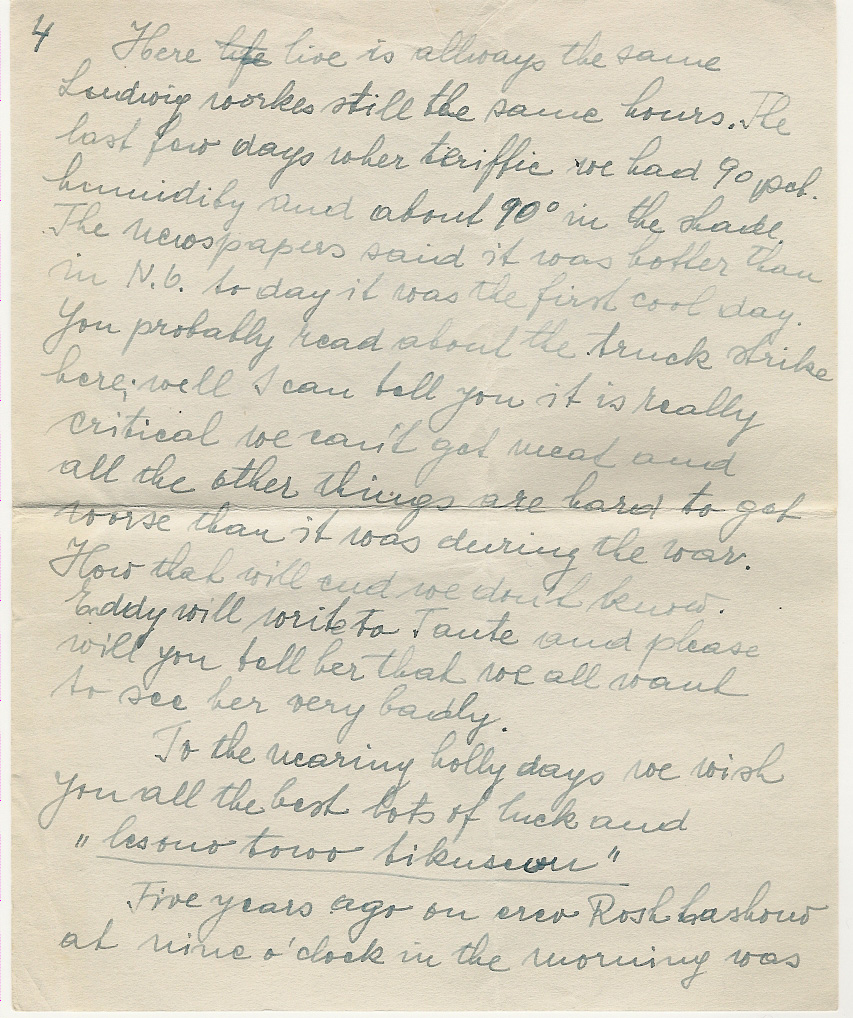 4
Here life live is allways the same
Ludwig workes still the same hours. The
last few days wher teriffic we had 90 pct.
humidity and about 90° in the shade.
The newspapers said it was hotter than
in N.O. to day it was the first cool day.
You probably read about the truck strike
here; well I can tell you it is really
critical we can't get meat and
all the other things are hard to get
worse than it was during the war.
How that will end we don't know.
Eddy will write to Tante and please
will you tell her that we all want
to see her very badly.
To the nearing holly days we wish
you all the best lots of luck and
„lesono towo tikusewu"
Five years ago on erev Rosh hashono
at nine o'clock in the morning was